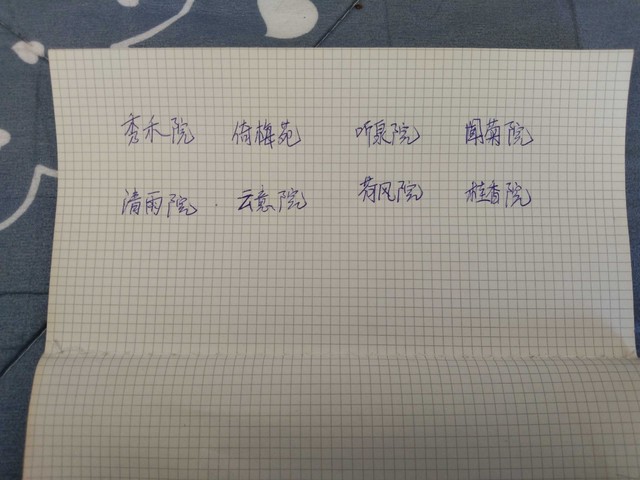 秀禾院 倚梅苑 听泉院 闻菊院
清雨院 云意院 荷风院 桂香院